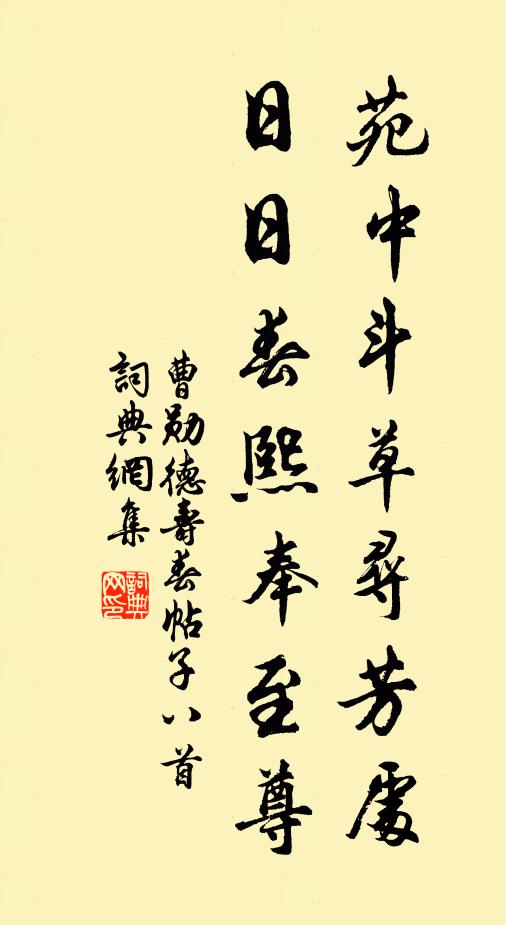 苑中斗草尋芳處
日日春熙奉至尊
曹勛德壽春帖子八首
詞典網集
詞典網印